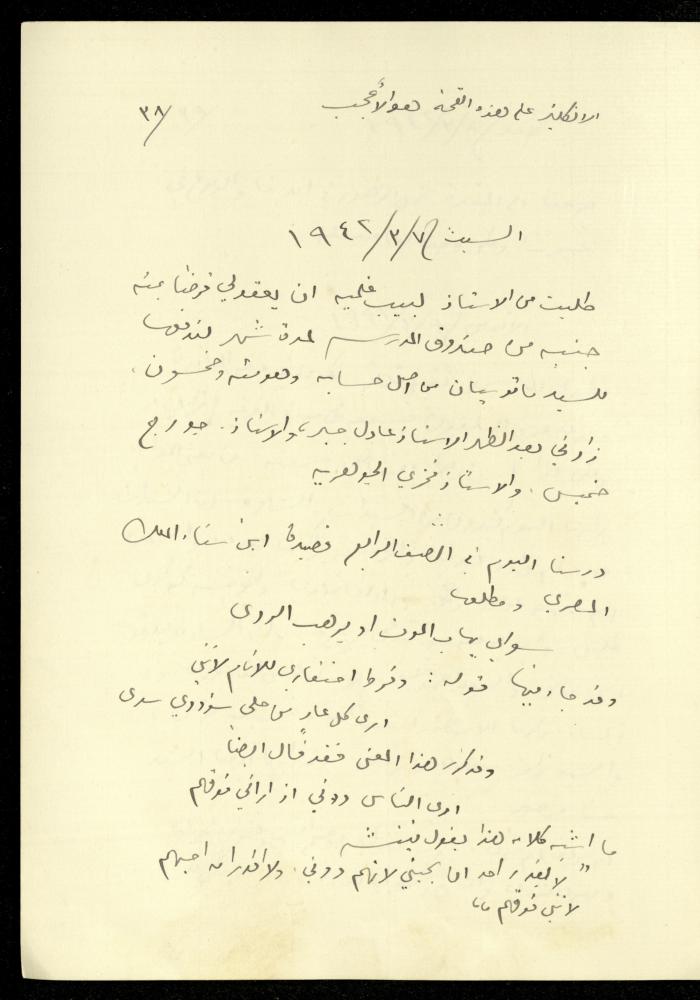 الانكليز على هذه القمة هو الأعجب
٣٨/
السبت ٧/٣/١٩٤٢
طلبت من الاستاذ لبيب غلميه ان يعقد لي قرضاً بمئة
جنيه من صندوق المدرسه لمدة شهر لندفعها
للسيد ماتوسيان من اصل حسابه وهو مئة وخمسون.
زارني بعد الظهر الاستاذ عادل جبر، والاستاذ جورج
خميس، والاستاذ فخري الجوهريه
درسنا اليوم في الصف الرابع قصيدة ابن سناء الملك
المصري ومطلعها
سواي يهاب الموت او يرهب الردى
وقد جاء فيها قوله: وفرط احتقاري للانام لأنني
ارى كل عار من حلى سؤددي سدى
وقد كرر هذا المعنى فقد قال ايضاً
ارى الناس دوني اذ اراني فوقهم
ما اشبه كلامه هذا بقول نيتشه
" لا يقدر احد ان يحبني لانهم دوني. ولا اقدر ان احبهم
لانني فوقهم "